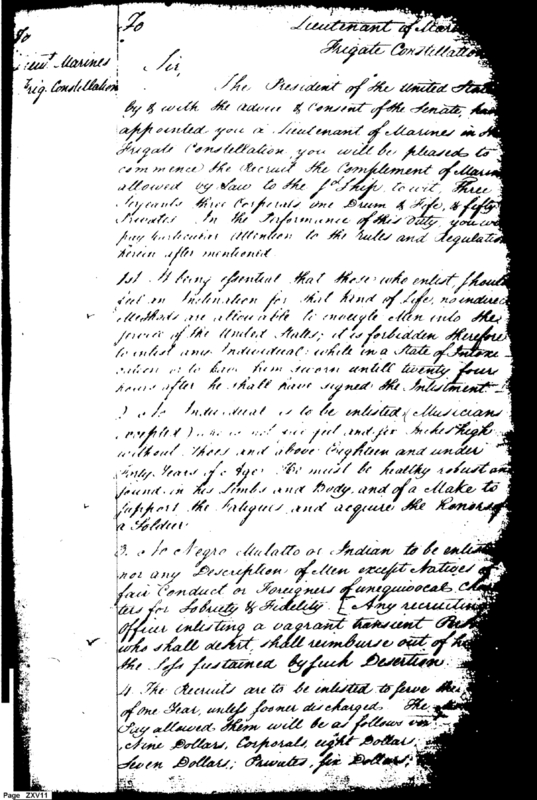 To
Lieut Marines
Frig. Constellation
To Lieutenant of Marin
Frigate Constellation
Sir,
The President of the United State
by & with the advice & Consent of the Senate, hav
appointed you a Lieutenant of Marines in the
Frigate Constellation you will be pleased to
commence the Recruit the Complement of Marin
allowed by Law to the sd Ship to wit, Three
Serjeants three Corporals one Drum & Fife, & fifty
Privates. In the Performance of this Duty, you wi
pay particular attention to the Rules and Regulation
herein after mentioned.
1st It being essential that those who enlist should
feel an Inclination for that kind of Life, no indirec
Methods are allowable to inveigle Men into the
service of the United States; it is forbidden therefore
to enlist any Individual while in a State of Intoxi
cation or to have them sworn untill twenty four
hours after he shall have signed the Inlistment
2 No Individual is to be enlisted (Musicians
excepted) who is not five feet and six Inches high
without Shoes and above Eighteen and under
Forty Years of Age He must be healthy robust an
sound in his Limbs and Body and of a Make to
support the Fatigues and acquire the Honors of
a Soldier
3. No Negro Mulatto or Indian to be enlist
nor any Description of Men except Natives of
fair Conduct or Foreigners of unequivocal Cha
ters for Sobriety & Fidelity. [Any recruiting
Officer inlisting a vagrant transient Pers
who shall desert, shall reimburse out of hi
the Loss sustained by such Desertion.
4. The Recruits are to be enlisted to serve the
of one Year, unless sooner discharged. The
Pay allowed them will be as follows viz
Nine Dollars, Corporals, eight Dollar
Seven Dollars; Privates, six Dollars;
Page ZXV11